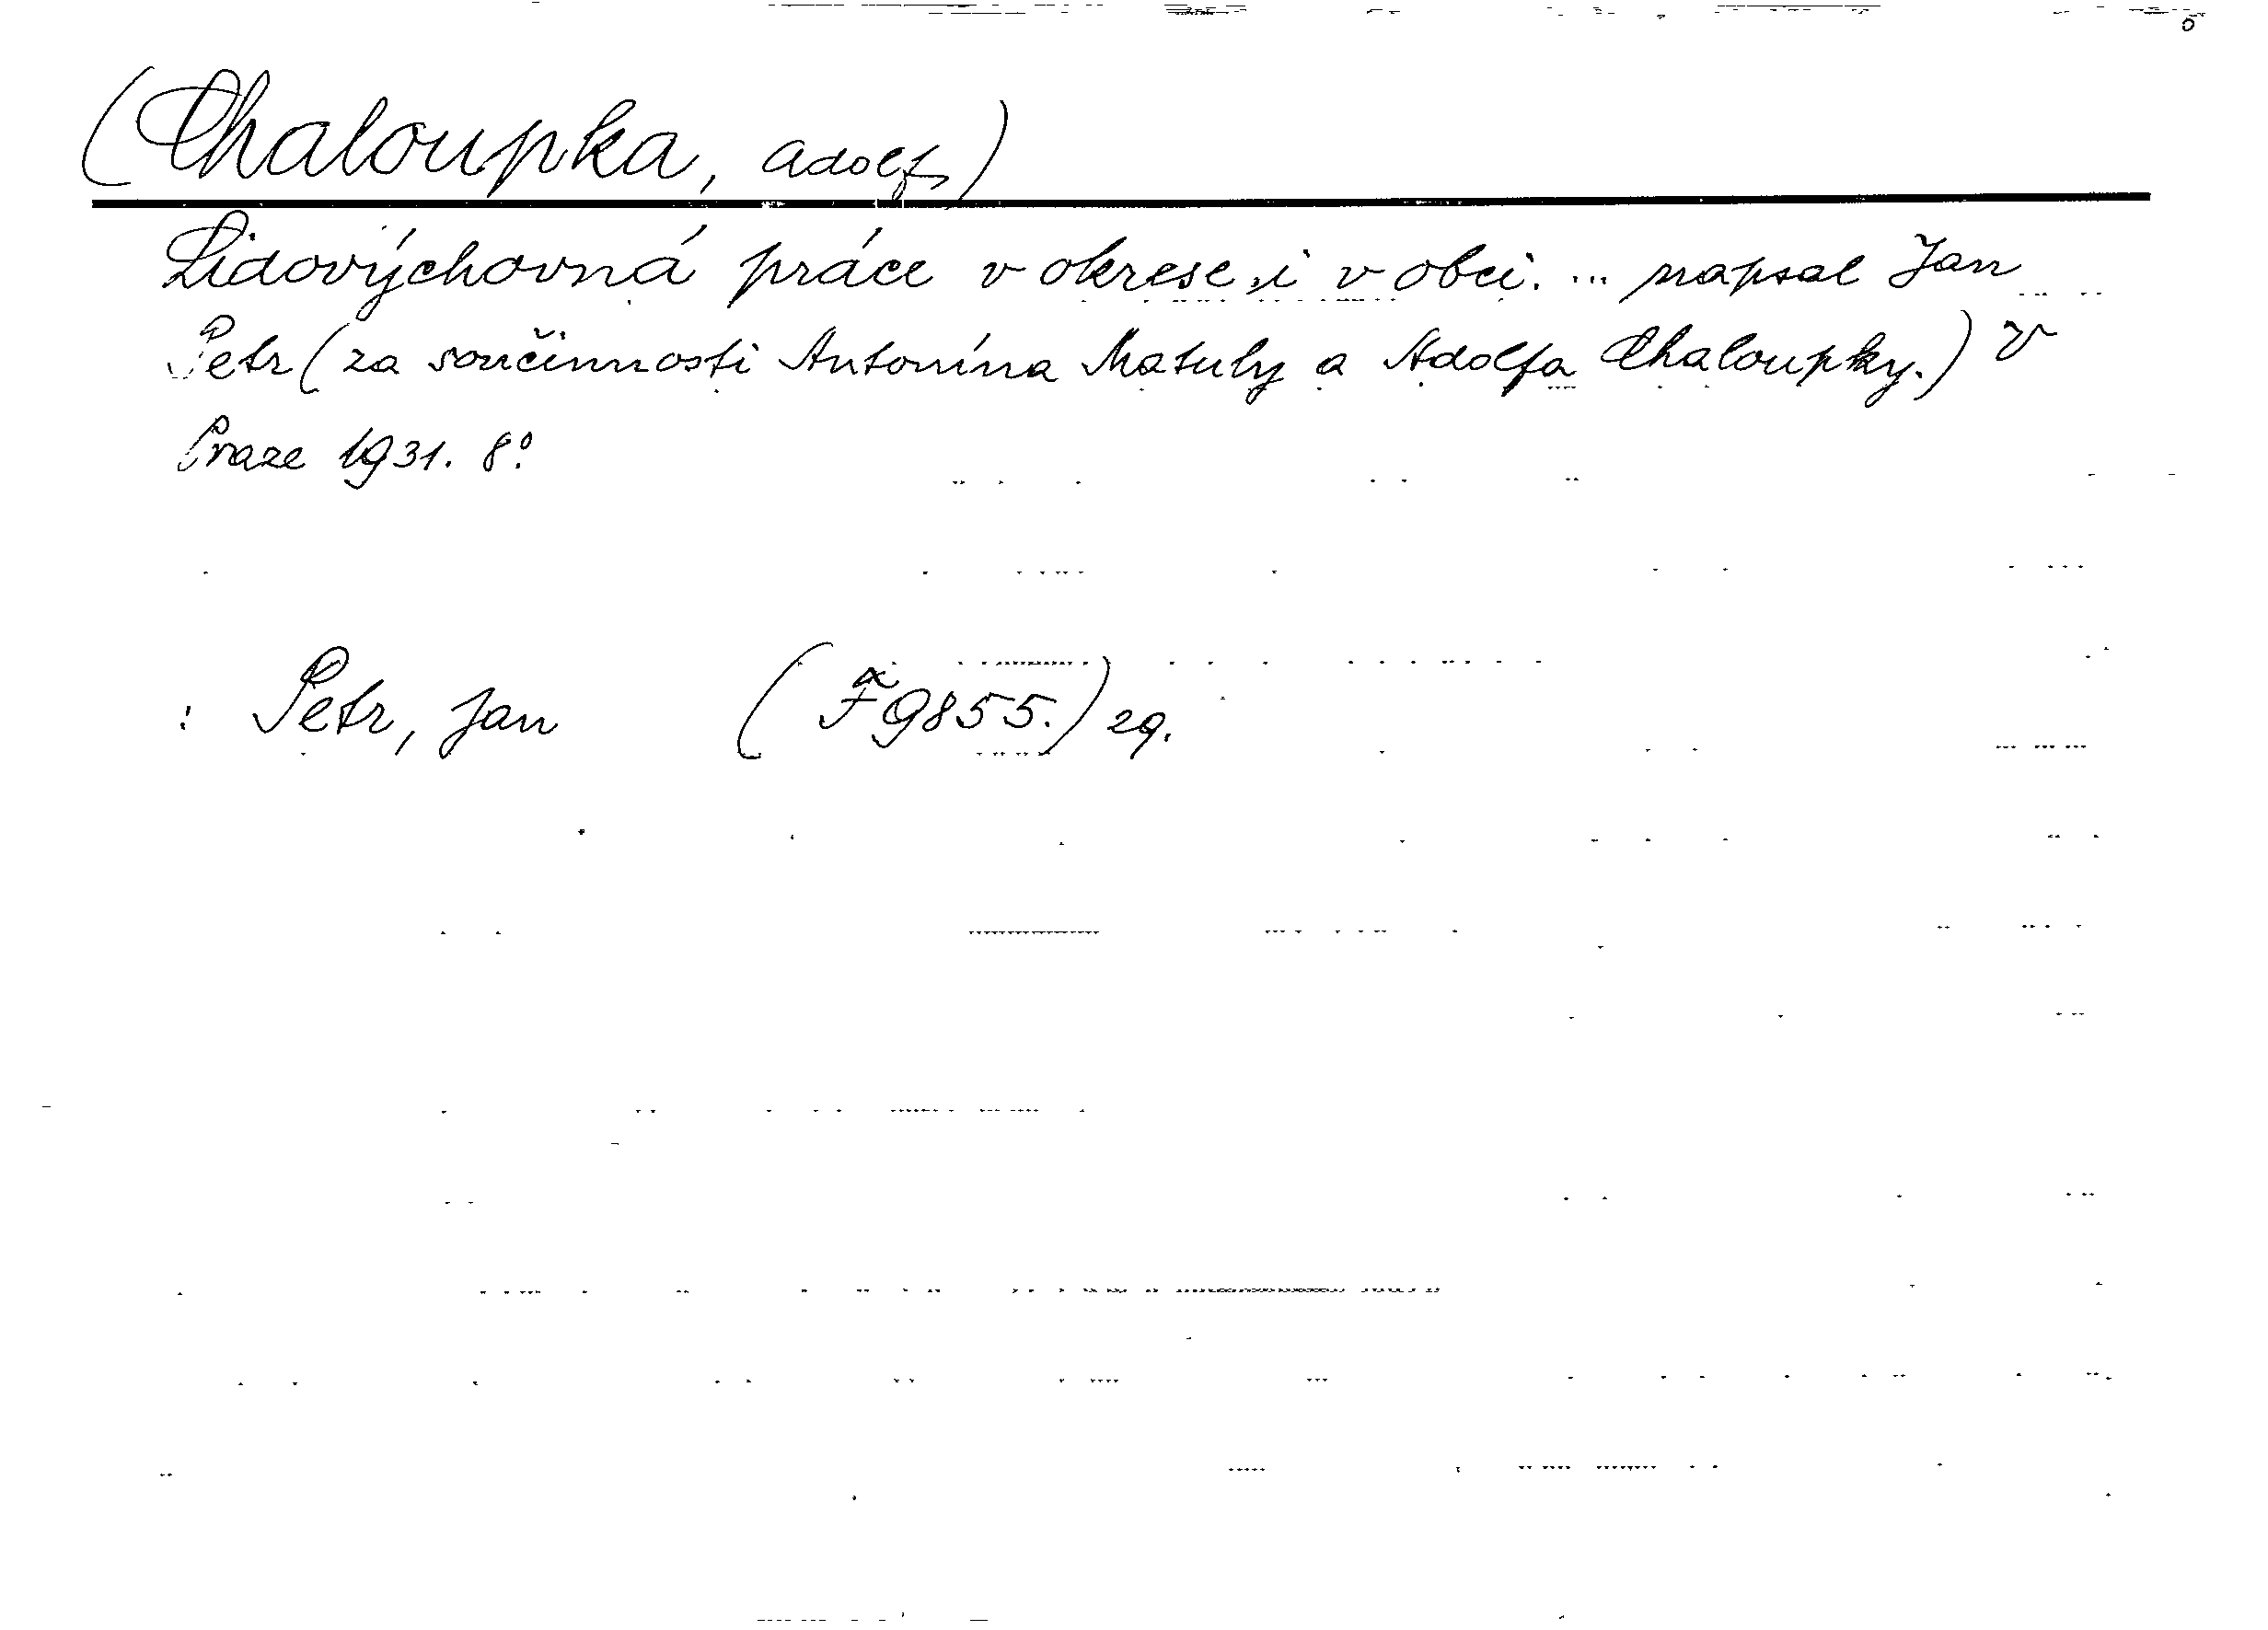 (Chaloupka, Adolf)
Lidovýchovná práce v okrese i v obci. ... napsal Jan
Petr (za součinnosti Antonína Matuly a Adolfa Chaloupky.) V
Praze 1931. 8°.
: Petr, Jan (F 9855.) 29.